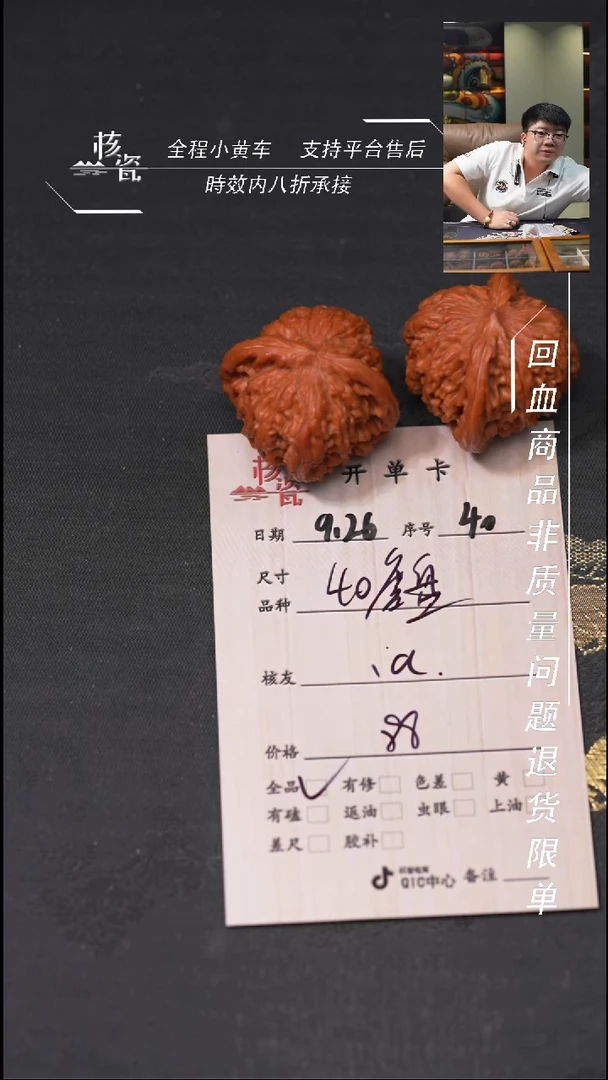 核瓷
全程小黄车 支持平台售后
時效内八折承接
回血商品非质量问题退货限单
核瓷 开单卡
日期 9.26 序号 40
尺寸 品种 40磨盘
核友 、a.
价格 88
全品 ✓ 有修 色差 黄
有磕 返油 虫眼 上油
差尺 胶补
抖音电商 QIC中心 备注